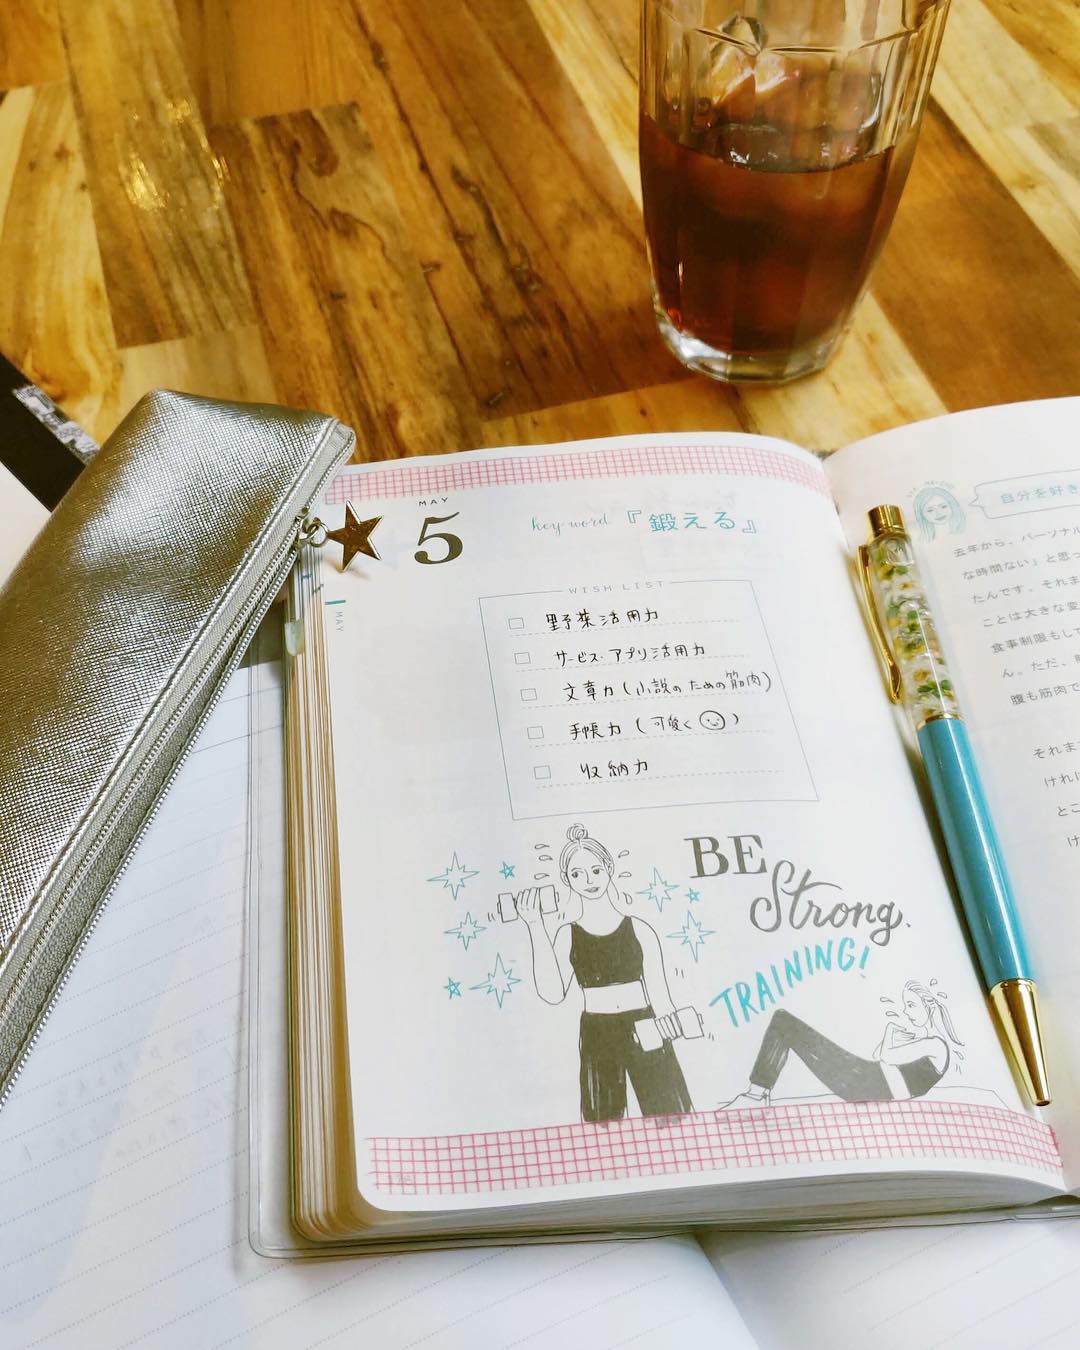 MAY
5
key word 『鍛える』
MAY
WISH LIST
野菜活用力
サービス・アプリ活用力
文章力(小説のための筋肉)
手帳力(可愛く)
収納力
BE
Strong.
TRAINING!
自分を好き
去年から、パーソナル
な時間ない」と思っ
たんです。それま
ことは大きな変
食事制限もして
ん。ただ、
腹も筋肉で
それま
けれ
とこ
け